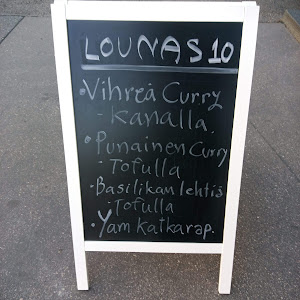 LOUNAS 10
• Vihreä Curry
- Kanalla
• Punainen Curry
- Tofulla
• Basilikan lehtiä
- Tofulla
• Yam katkarap.